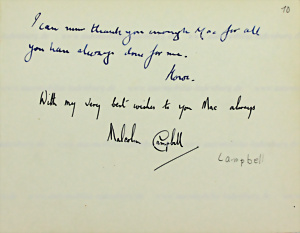 10
I can never thank you enough Mac for all
you have always done for me.
With my very best wishes to you Mac always
Malcolm Campbell
Campbell